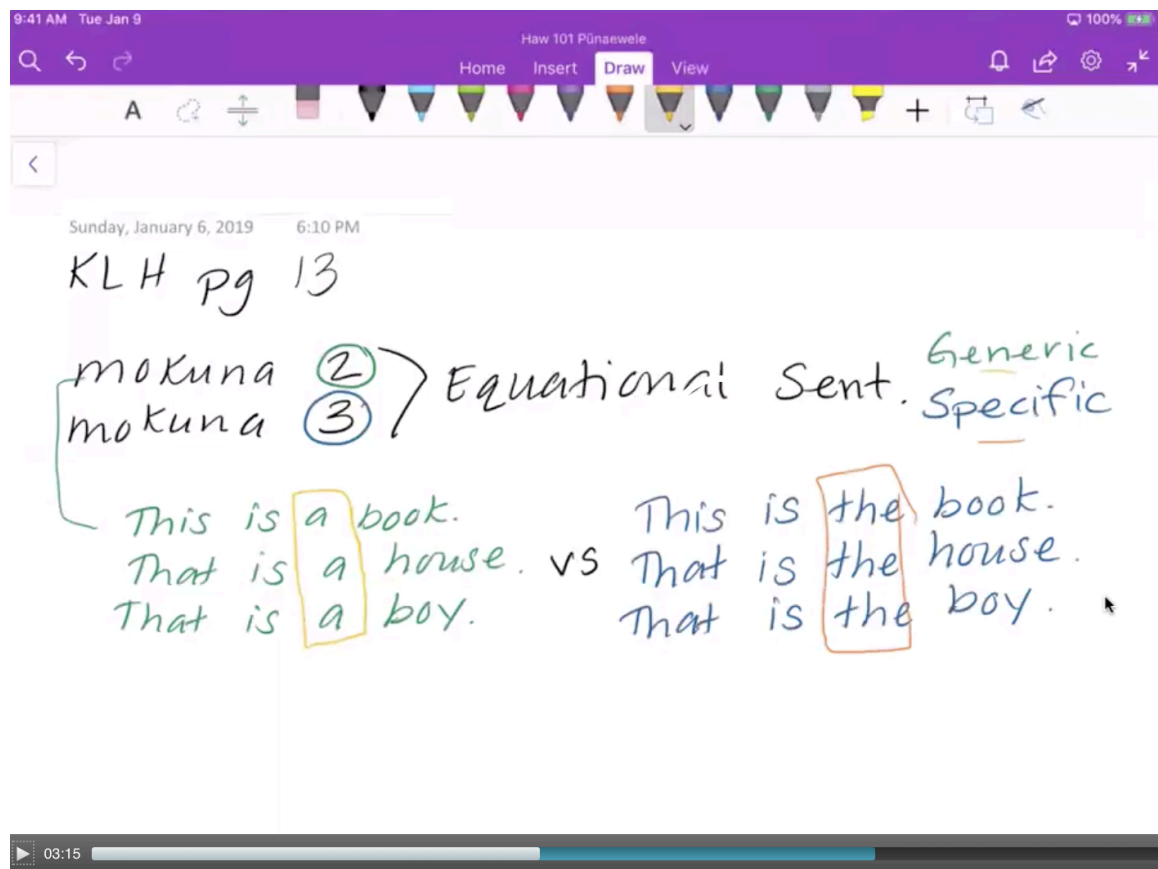 9:41 AM Tue Jan 9 100%
Haw 101 Pūnaewele
Home Insert Draw View
A
Sunday, January 6, 2019 6:10 PM
KLH pg 13
mokuna 2
mokuna 3
Equational Sent.
Generic
Specific
This is a book.
That is a house.
That is a boy.
vs
This is the book.
That is the house.
That is the boy.
03:15